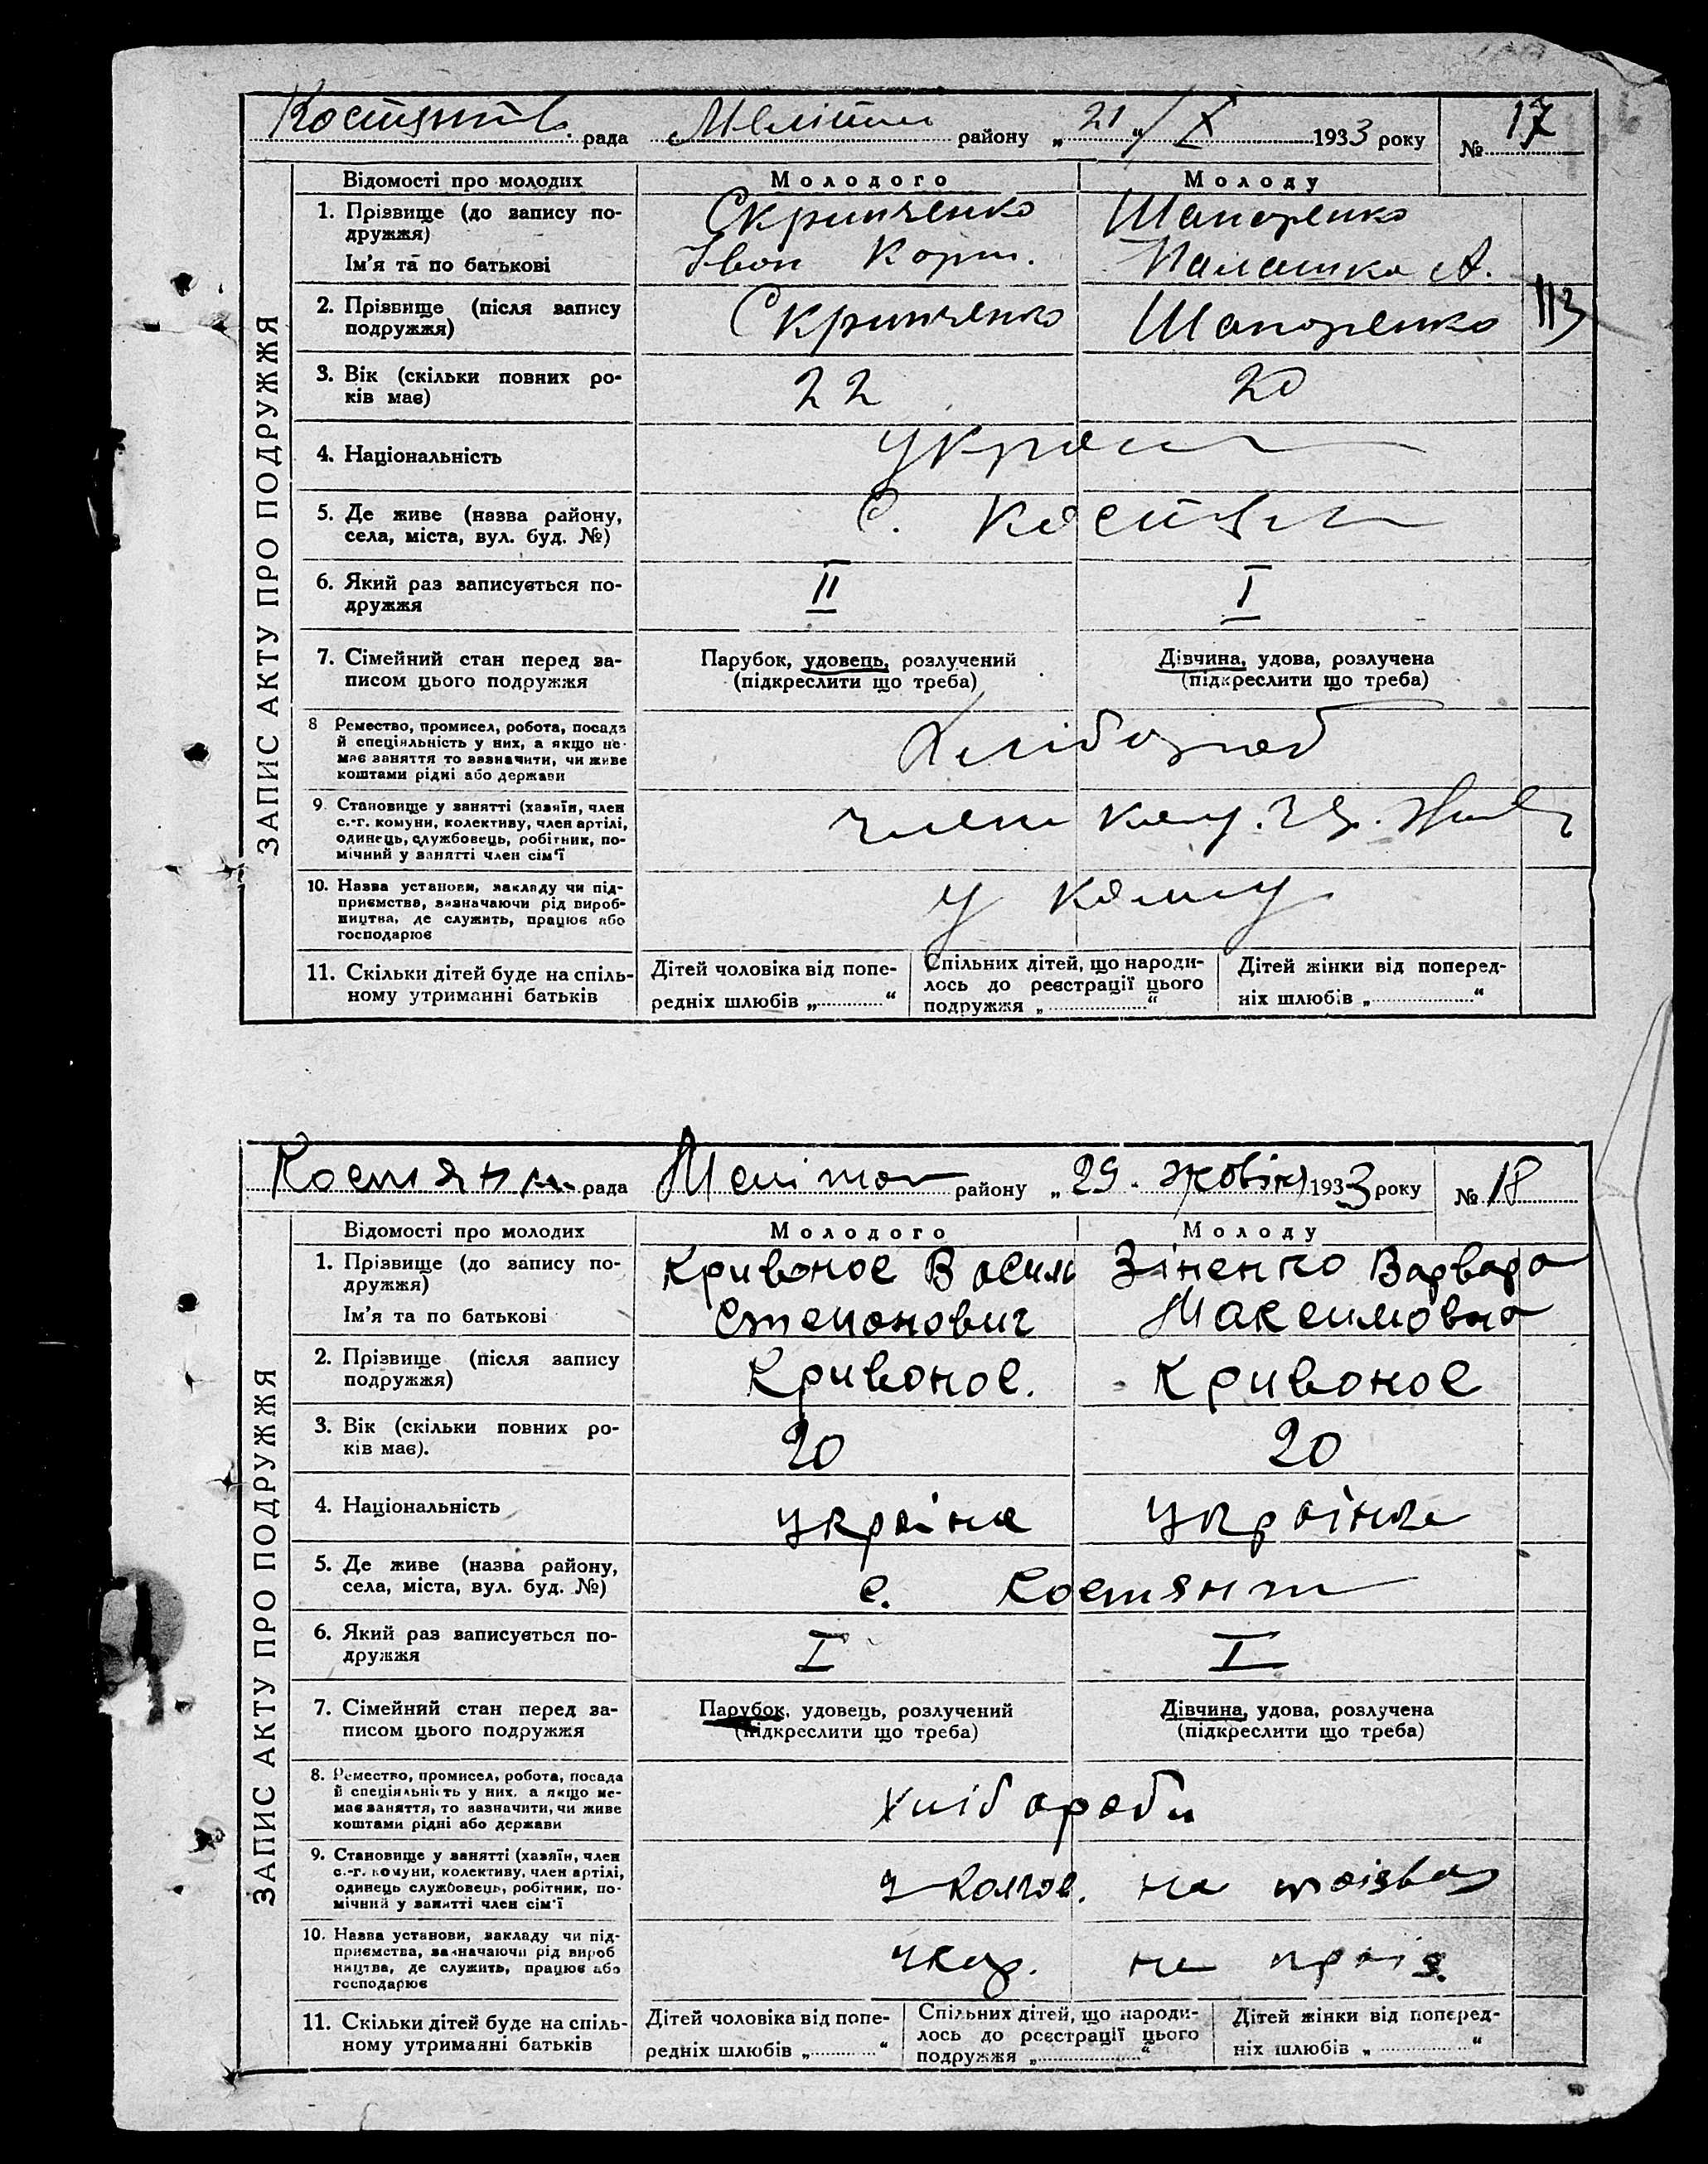 Костянт. рада Меліт району „21“ / X 1933 року № 17
ЗАПИС АКТУ ПРО ПОДРУЖЖЯ
Відомості про молодих Молодого Молоду
1. Прізвище (до запису по-
дружжя) Скрипченко Шапоренко
Ім'я та по батькові Іван Корн. Палашка А.
2. Прізвище (після запису
подружжя) Скрипченко Шапоренко
113
3. Вік (скільки повних ро-
ків має) 22 20
4. Національність Україн
5. Де живе (назва району,
села, міста, вул. буд. №) с. Костян
6. Який раз записується по-
дружжя II I
7. Сімейний стан перед за-
писом цього подружжя
Парубок, удовець, розлучений
(підкреслити що треба)
Дівчина, удова, розлучена
(підкреслити що треба)
8 Ремество, промисел, робота, посада
й спеціяльність у них, а якщо не-
має заняття то зазначити, чи живе
коштами рідні або держави
Хлібороб
9. Становище у занятті (хазяїн, член
с.-г. комуни, колективу, член артілі,
одинець, службовець, робітник, по-
мічний у занятті член сім'ї
член
10. Назва установи, закладу чи під-
приємства, зазначаючи рід вироб-
ництва, де служить, працює або
господарює
у
11. Скільки дітей буде на спіль-
ному утриманні батьків
Дітей чоловіка від попе-
редніх шлюбів „ “
Спільних дітей, що народи-
лось до реєстрації цього
подружжя „ “
Дітей жінки від поперед-
ніх шлюбів „ “
Костянт. рада Мелітоп району „29. жовтня 1933 року № 18
ЗАПИС АКТУ ПРО ПОДРУЖЖЯ
Відомості про молодих Молодого Молоду
1. Прізвище (до запису по-
дружжя) Кривонос Василь Зіненко Варвара
Ім'я та по батькові Степанович Максимовна
2. Прізвище (після запису
подружжя) Кривонос. Кривонос
3. Вік (скільки повних ро-
ків має). 20 20
4. Національність україне українка
5. Де живе (назва району,
села, міста, вул. буд. №) с. Костянт
6. Який раз записується по-
дружжя I I
7. Сімейний стан перед за-
писом цього подружжя
Парубок, удовець, розлучений
(підкреслити що треба)
Дівчина, удова, розлучена
(підкреслити що треба)
8. Ремество, промисел, робота, посада
й спеціяльність у них, а якщо не-
має заняття, то зазначити, чи живе
коштами рідні або держави
хлібороби
9. Становище у занятті (хазяїн, член
с.-г. комуни, колективу, член артілі,
одинець службовець, робітник, по-
мічний у занятті член сім'ї
у колгос. на
10. Назва установи, закладу чи під-
приємства, зазначаючи рід вироб
ництва, де служить, працює або
господарює
на
11. Скільки дітей буде на спіль-
ному утриманні батьків
Дітей чоловіка від попе-
редніх шлюбів „ “
Спільних дітей, що народи-
лось до реєстрації цього
подружжя „ “
Дітей жінки від поперед-
ніх шлюбів „ “